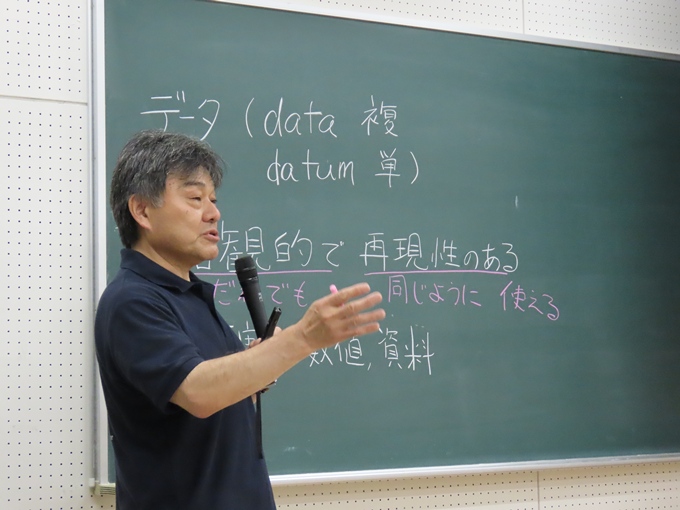 データ (data 複
datum 単)
観的で 再現性のある
だ でも 同じように 使える
数値, 資料